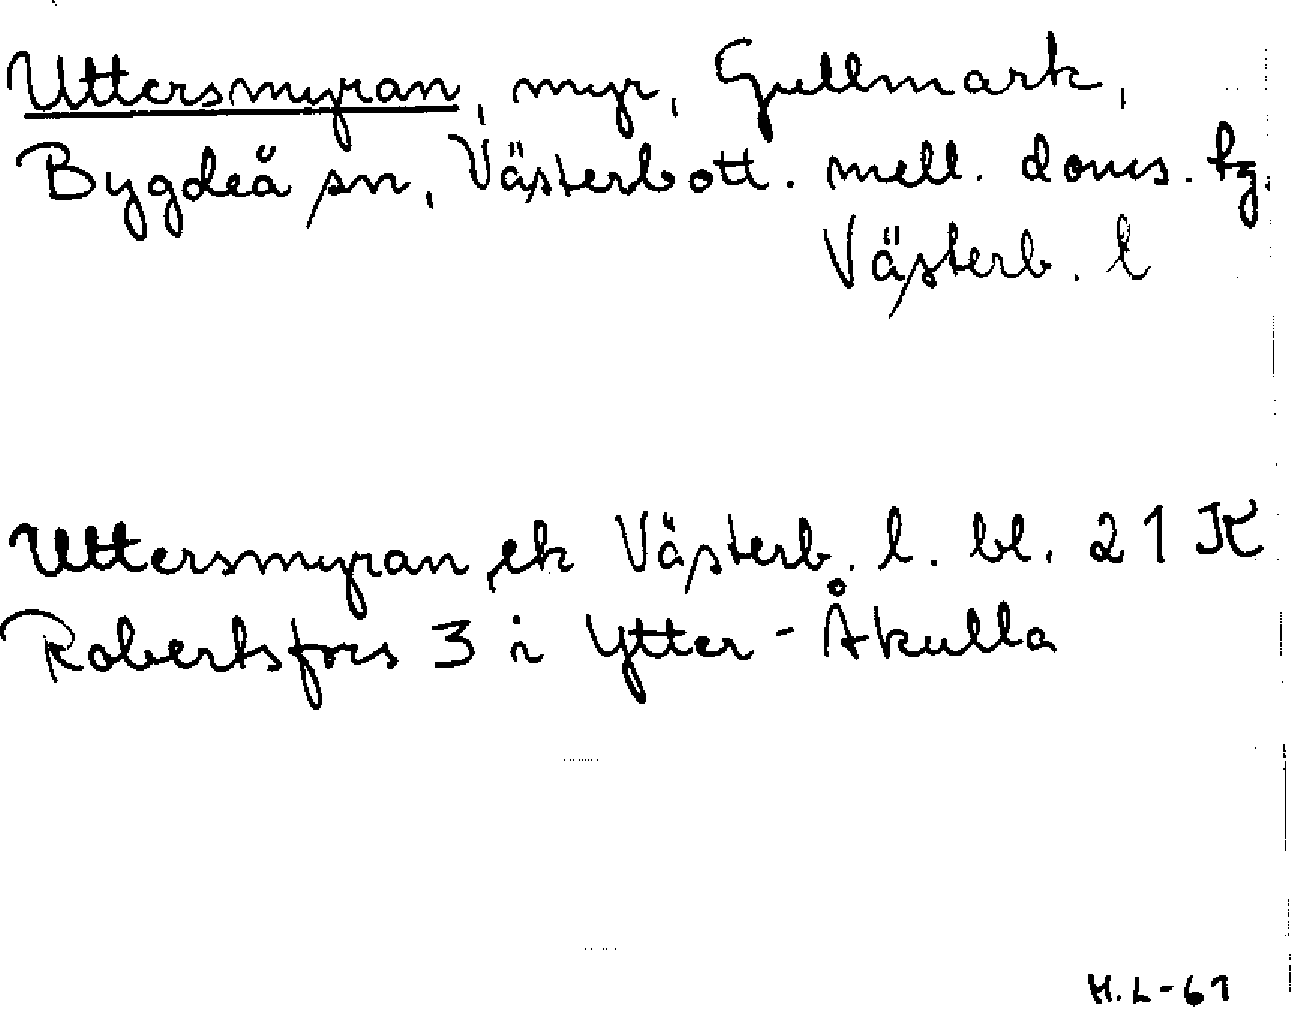 Uttersmyran, myr, Gullmark,
Bygdeå sn, Västerbott. mell. doms. tg.
Västerb. l
Uttersmyran, ek Västerb. l. bl. 21 K
Robertsfors 3 i Ytter-Åkulla
H.L-61